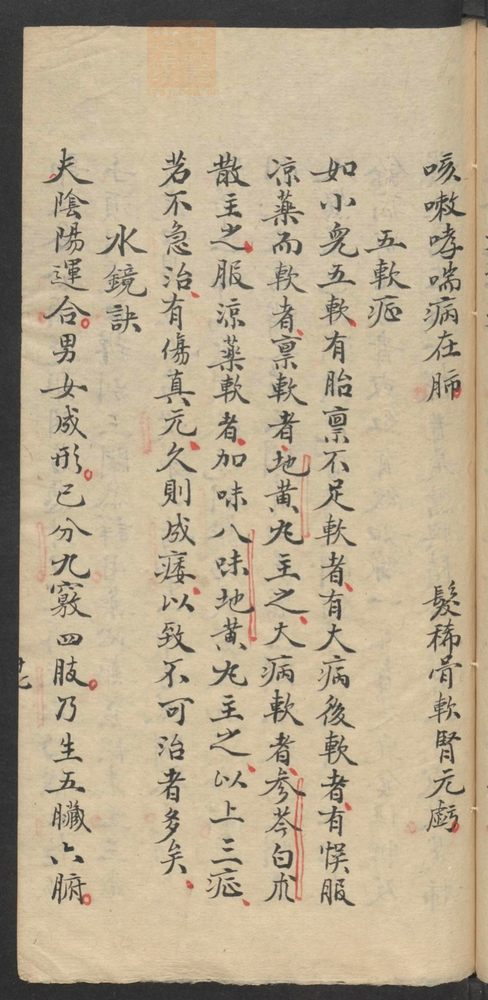 咳嗽哮喘病在肺 髮稀骨軟腎元虧
五軟症
如小兒五軟有胎禀不足軟者有大病後軟者有悞服
凉藥而軟者禀軟者地黃丸主之大病軟者参苓白朮
散主之服凉藥軟者加味八味地黃丸主之以上三症
若不急治有傷真元久則成痿以致不可治者多矣
水鏡訣
夫陰陽運合男女成形已分九竅四肢乃生五臟六腑